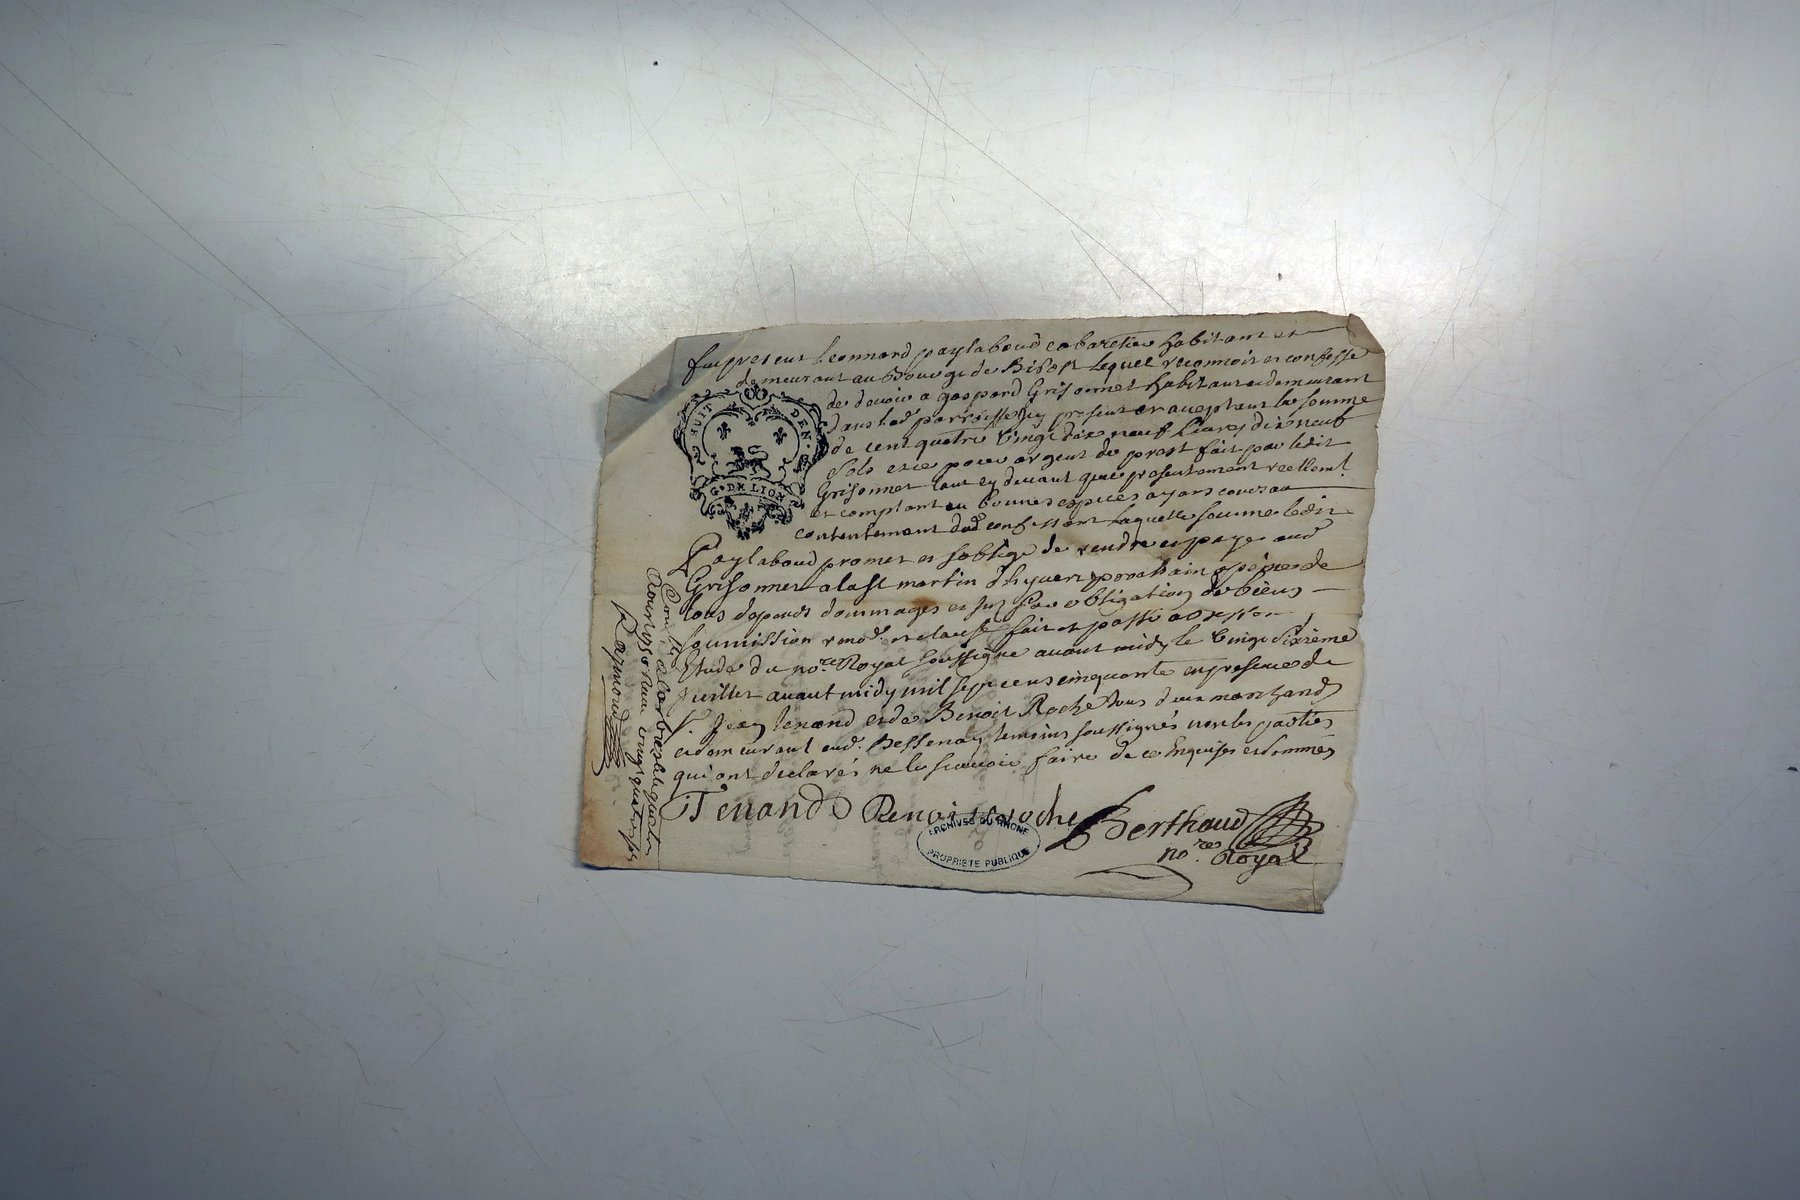 fut present Leonnard paylaboud cabaretier habitant et
demeurant au Bourg de Bibost lequel reconnoit et confesse
de devoir a gaspard Grisonnet habitant et demeurant
dans lad parroisse Icy present et acceptant la somme
de cent quatre Vingt dix neuf Livres dix neuf
Sols et ce pour argent de prest fait par ledit
Grisonnet tout cy devant que presentement reellemt
et comptant en bonnes especes ayant cours au
contentement dud confessant laquelle somme ledit
Paylaboud promet et soblige de rendre et payer aud
Grisonnet a la st martin d'hyvert prochain a peine de
tous depends dommages et par obligation de biens
soumission renods et clause fait et passé a Bessenay
Etude du nore Royal soussigne avant midy le vingt sixième
Juillet avant midy mil sept cens cinquante en presence de
sr Jean Tenand et de Benoit Roche tous deux marchands
et demeurant aud. Bessenay temoins soussignés non les parties
qui ont declarés ne le scavoir faire de ce Enquises et sommés
J Tenand Benoit Roche Berthaud
nore Royal
HUIT DEN.
G. DE LION
Con le a larbresle quatre
aout 1750 Reçu vingt quatre sols
Raymond
ARCHIVES DU RHONE
PROPRIETE PUBLIQUE